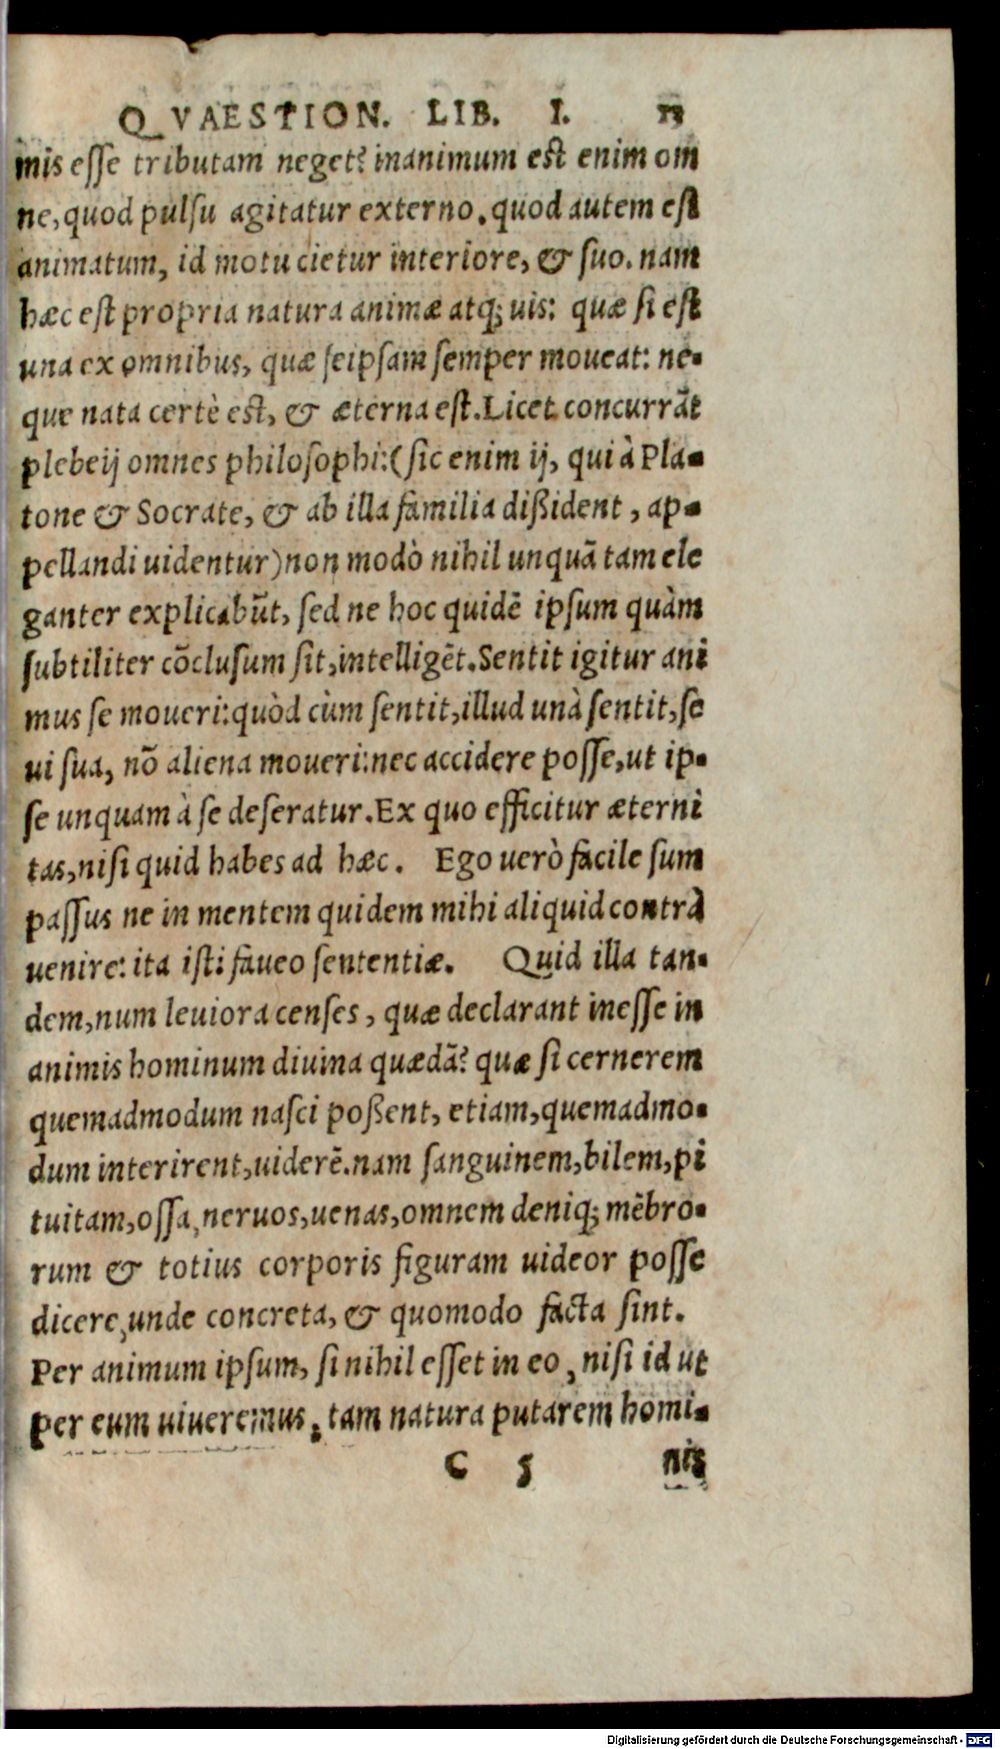 QVAESTION. LIB. I.
mis esse tributam neget? inanimum est enim om
ne, quod pulsu agitatur externo. quod autem est
animatum, id motu cietur interiore, & suo. nam
hæc est propria natura animæ atq; uis: quæ si est
una ex omnibus, quæ seipsam semper moueat: ne-
que nata certè est, & æterna est. Licet concurrāt
plebeij omnes philosophi: (sic enim ij, qui à Pla-
tone & Socrate, & ab illa familia dißident, ap-
pellandi uidentur) non modò nihil unquā tam ele
ganter explicabūt, sed ne hoc quidē ipsum quàm
subtiliter cōclusum sit, intelligēt. Sentit igitur ani
mus se moueri: quòd cùm sentit, illud unà sentit, se
ui sua, nō aliena moueri: nec accidere posse, ut ip-
se unquam à se deseratur. Ex quo efficitur æterni
tas, nisi quid habes ad hæc. Ego uerò facile sum
passus ne in mentem quidem mihi aliquid contrà
uenire: ita isti faueo sententiæ. Quid illa tan-
dem, num leuiora censes, quæ declarant inesse in
animis hominum diuina quædā? quæ si cernerem
quemadmodum nasci poßent, etiam, quemadmo-
dum interirent, uiderē. nam sanguinem, bilem, pi
tuitam, ossa, neruos, uenas, omnem deniq; mēbro-
rum & totius corporis figuram uideor posse
dicere, unde concreta, & quomodo facta sint.
Per animum ipsum, si nihil esset in eo, nisi id ut
per eum uiueremus, tam natura putarem homi-
C 5 nis
Digitalisierung gefördert durch die Deutsche Forschungsgemeinschaft - DFG